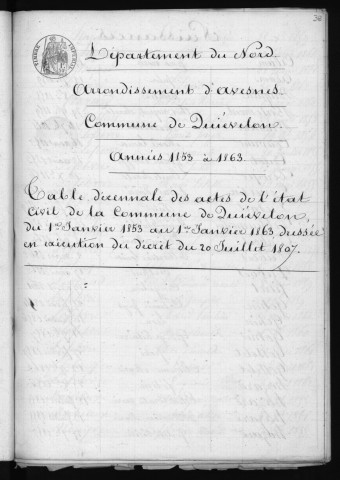 Département du Nord
Arrondissement d'Avesnes
Commune de Quiévelon.
Années 1853 à 1863
Table décennale des actes de l'état
Civil de la Commune de Quiévelon,
du 1er Janvier 1853 au 1er Janvier 1863 dressée
en exécution du décret du 20 Juillet 1807.